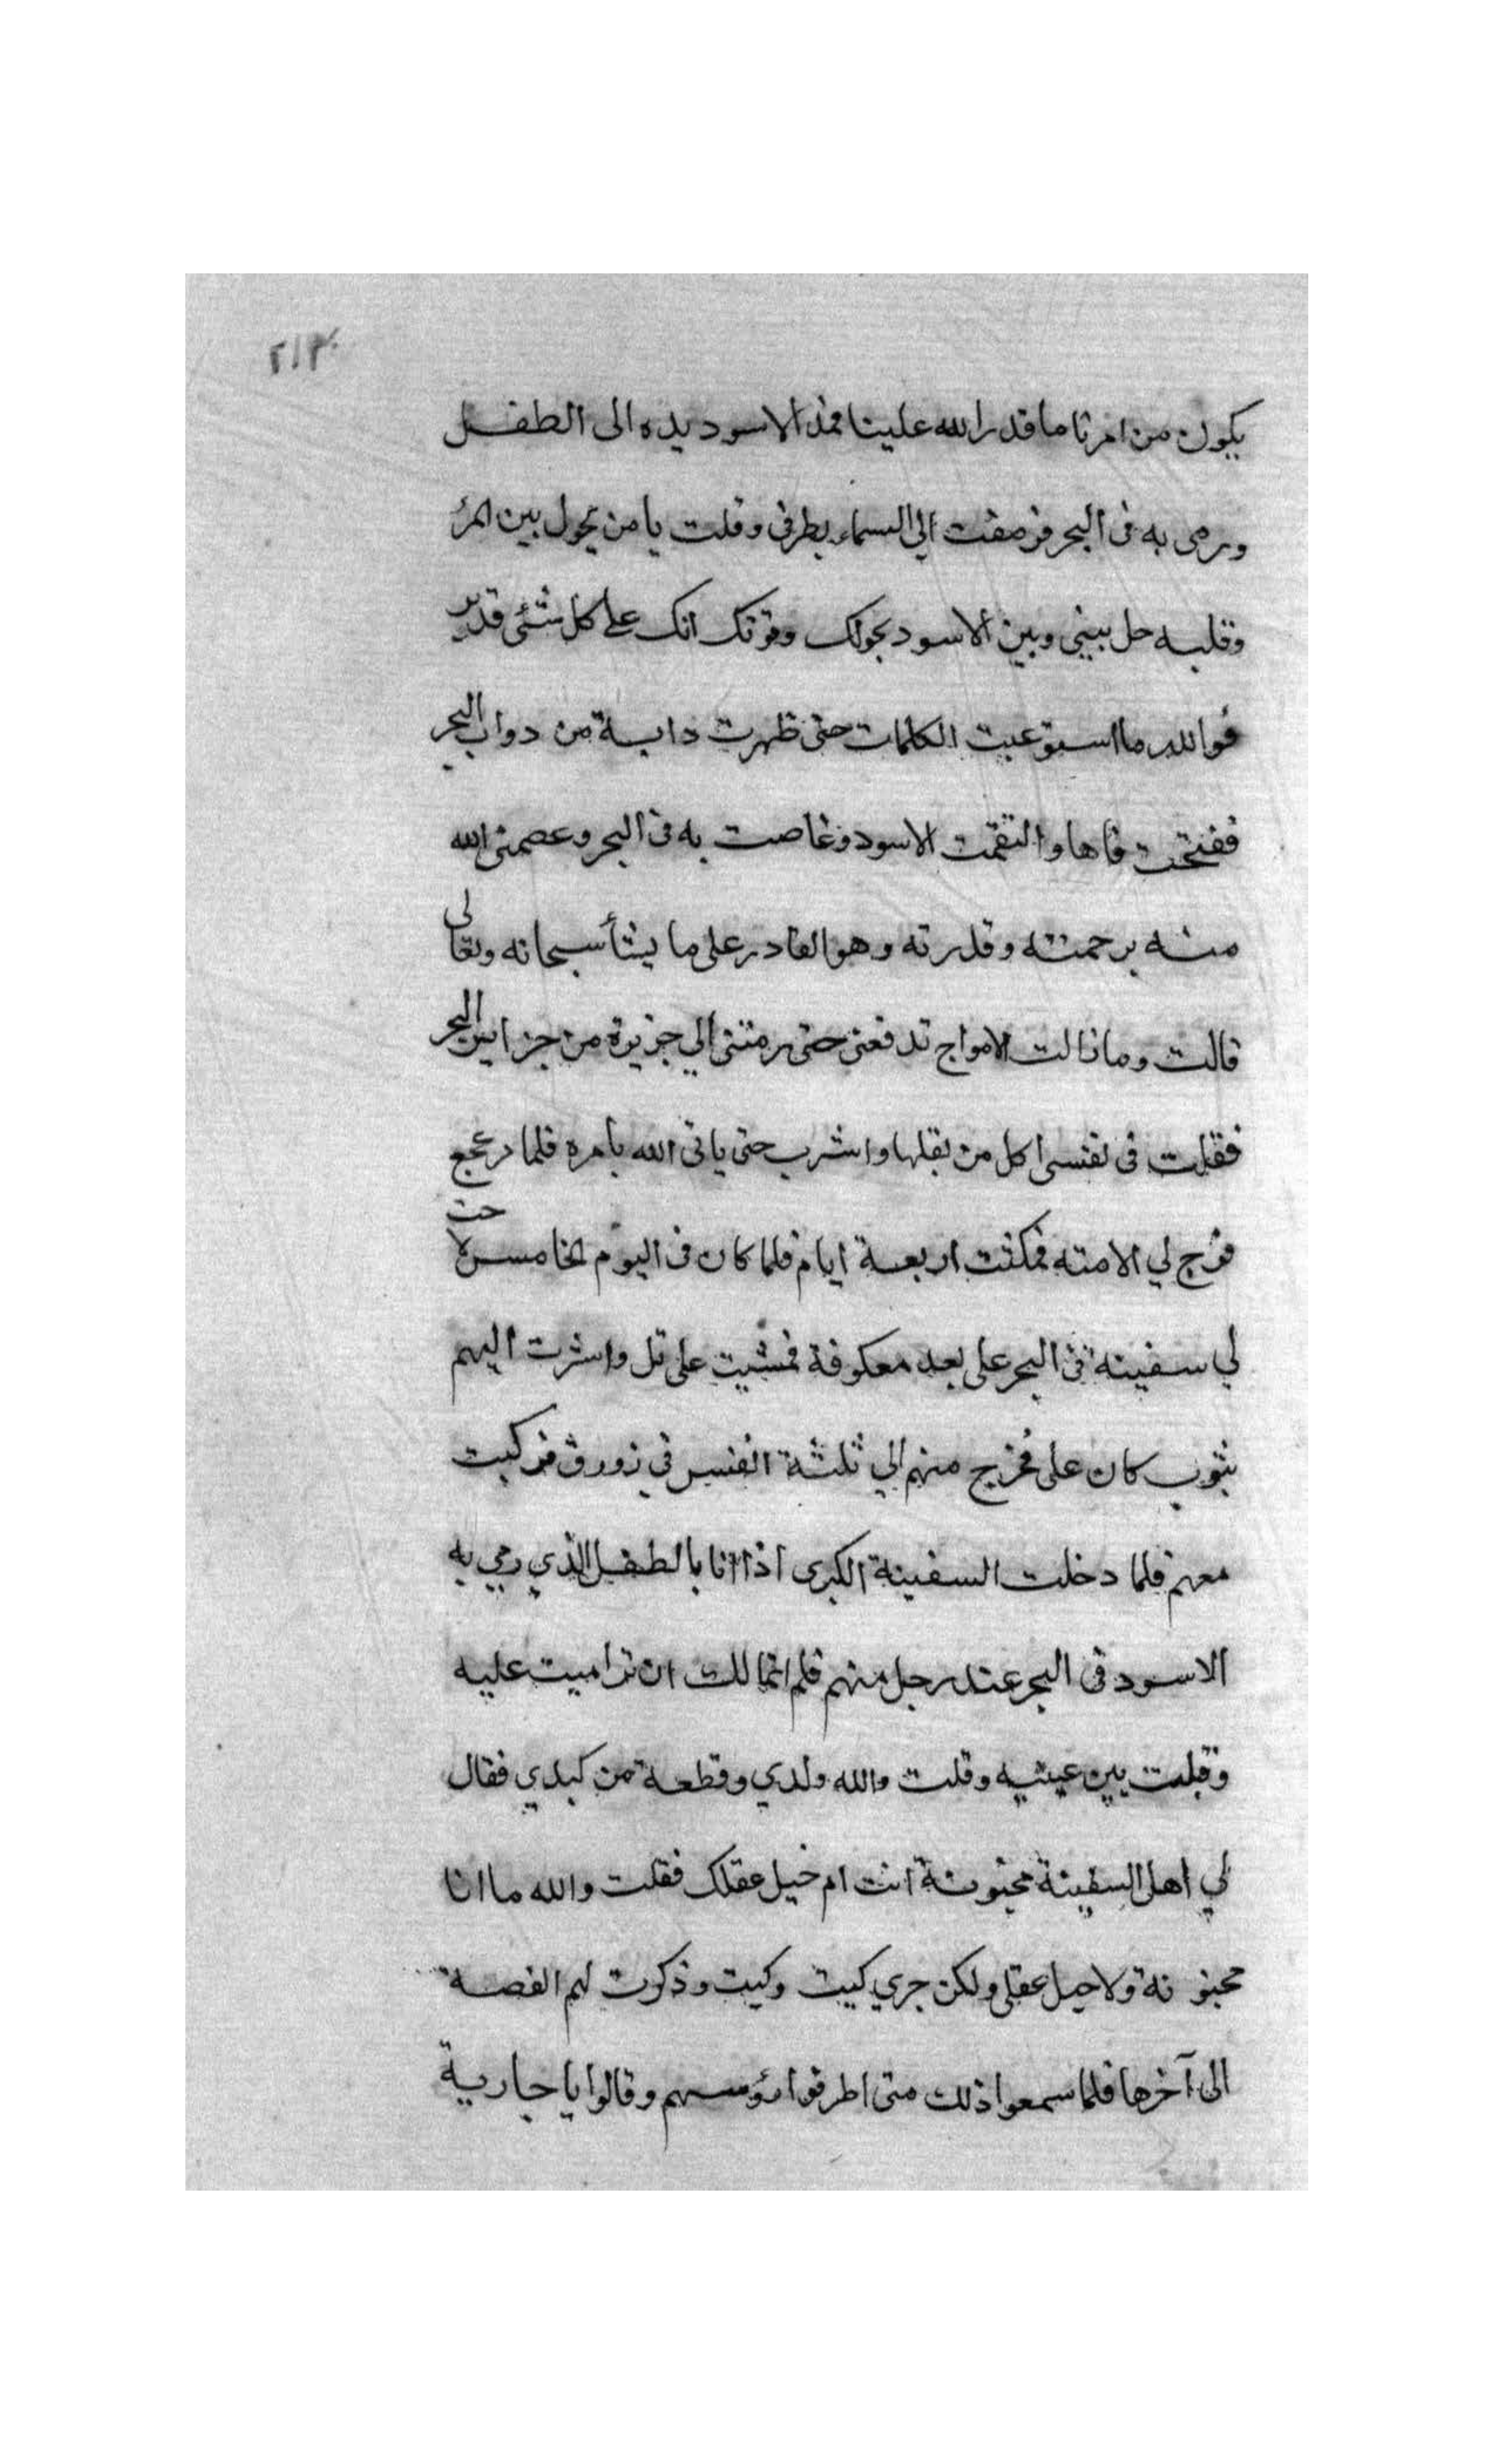 ٢١٣
يكون من امرنا ما قدر الله علينا فمد الاسود يده الى الطفل
ورمى به فى البحر فرمقت الي السماء بطرفى وقلت يا من يحول بين المرء
وقلبه حل بينى وبين الاسود بحولك وقوتك انك على كل شئى قدير
فوالله ما استوعبت الكلمات حتى ظهرت دابة من دواب البحر
ففتحت فاها والتقمت الاسود وغاصت به فى البحر وعصمنى الله
منه برحمته وقدرته وهو القادر على ما يشأ سبحانه وتعالى
قالت وما زالت الامواج تدفعنى حتى رمتنى الي جزيرة من جزاير البحر
فقلت فى نفسى اكل من بقلها واشرب حتى ياتى الله بامره فلما
فرج لي الا منه فمكثت اربعة ايام فلما كان فى اليوم الخامس لاحت
لي سفينة فى البحر على بعد معكوفة فمشيت على تل واشرت اليهم
بثوب كان على فخرج منهم الي ثلثة انفس في زورق فركبت
معهم فلما دخلت السفينة الكبرى اذا انا بالطفل الذي رمي به
الاسود فى البحر عند رجل منهم فلم اتمالك ان تراميت عليه
وقبلت بين عينيه وقلت والله ولدي وقطعة من كبدي فقال
لي اهل السفينة مجنونة انت ام خبل عقلك فقلت والله ما انا
مجنونة ولا خبل عقلى ولكن جري كيت وكيت وذكرت لهم القصة
الى آخرها فلما سمعوا ذلك منى اطرقوا رؤسهم وقالوا يا جارية